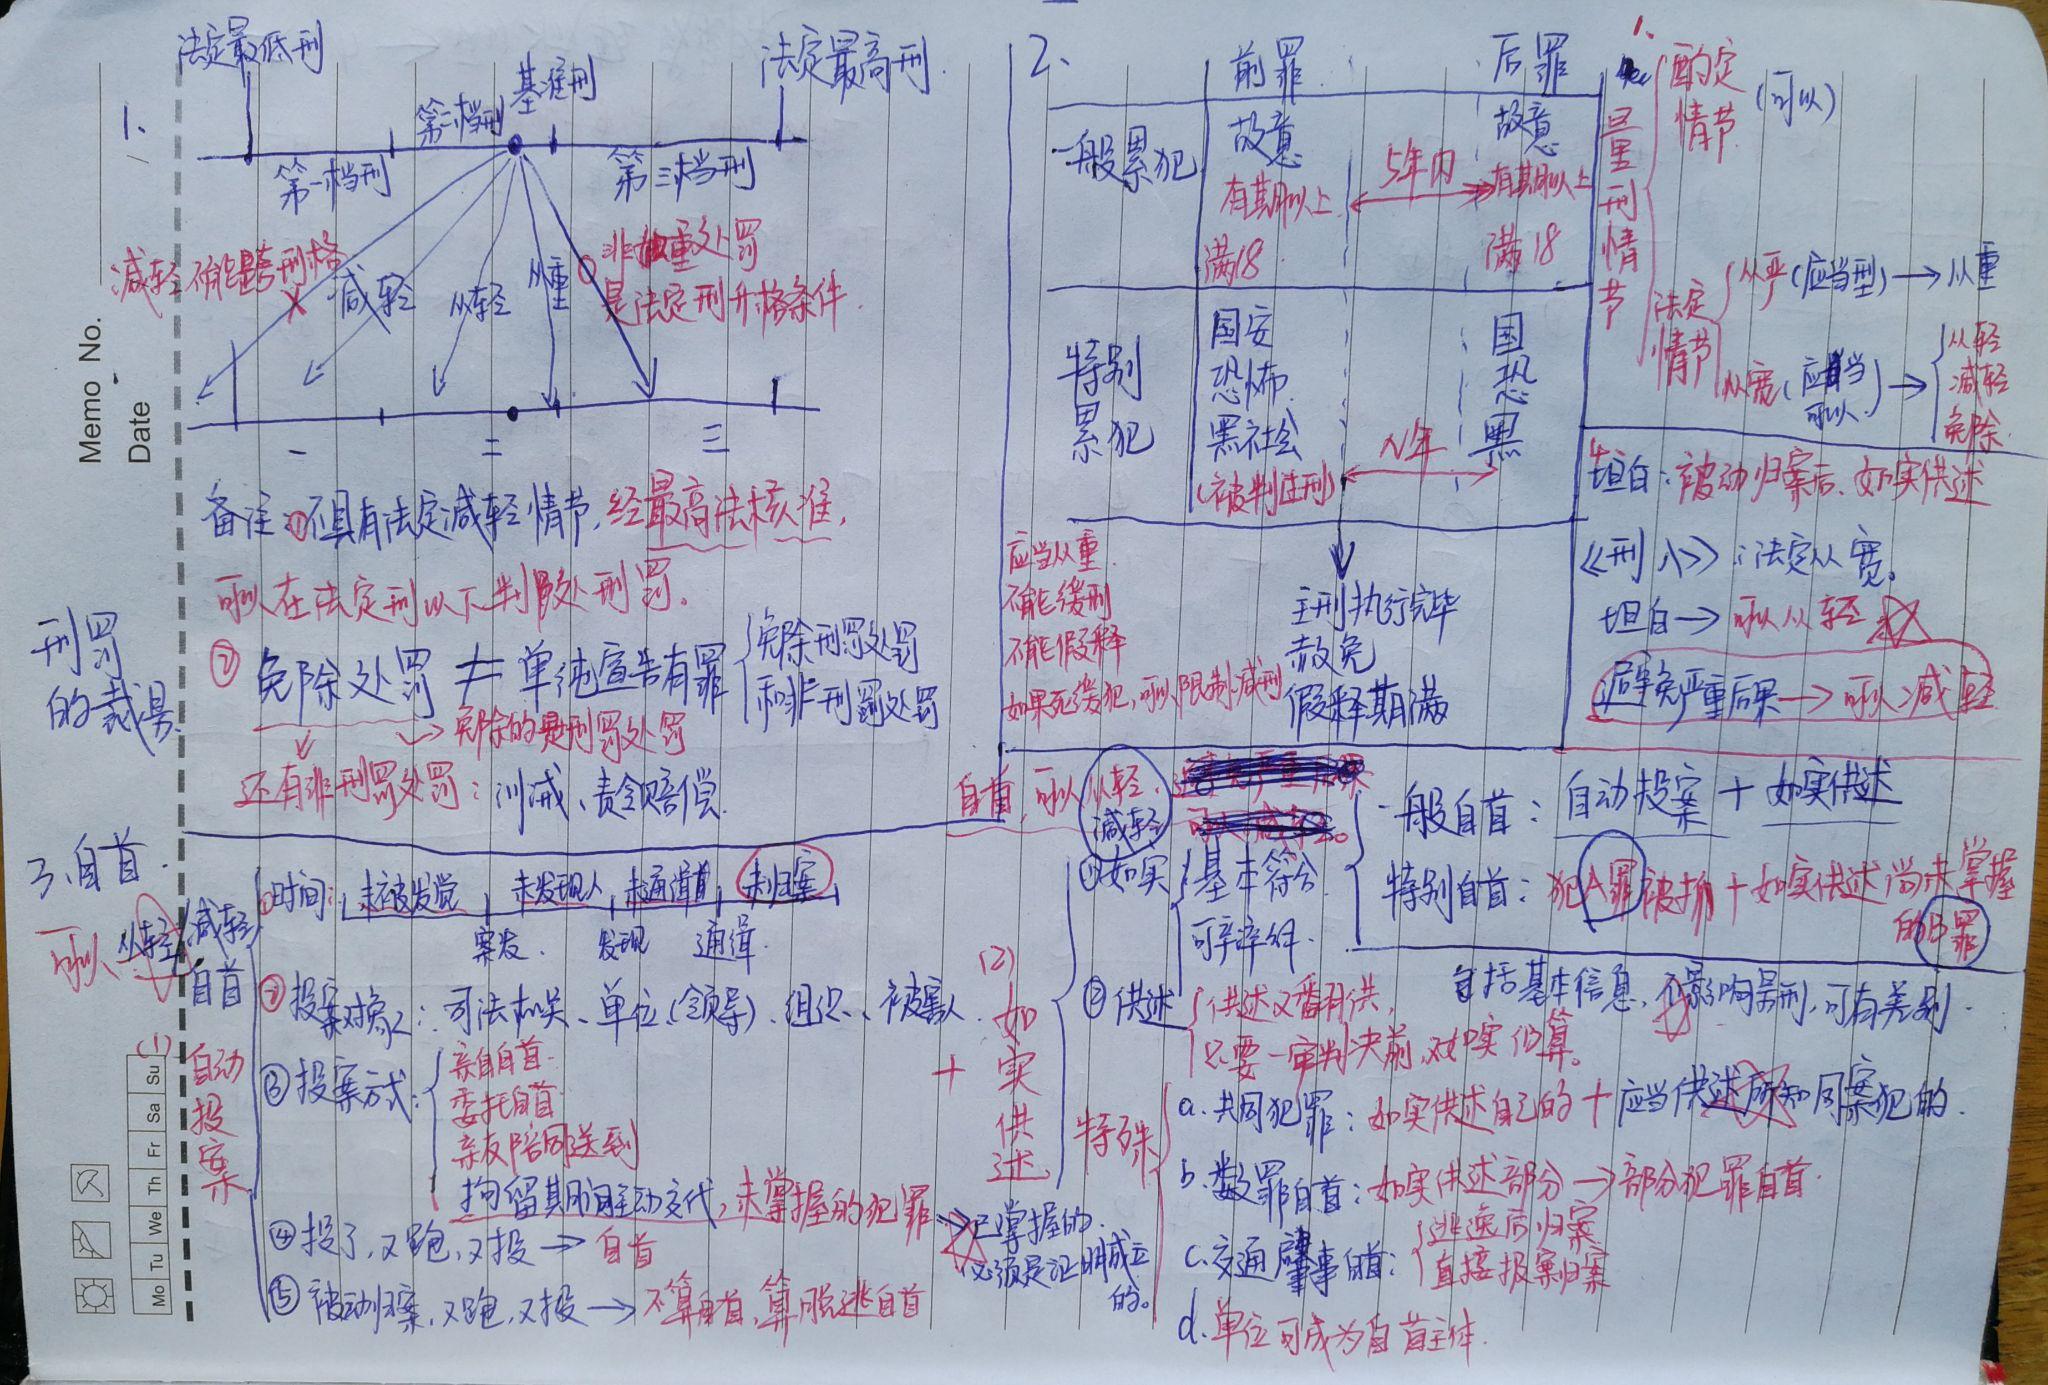 Memo No.
Date
Mo Tu We Th Fr Sa Su
刑罚
的裁量
1、
法定最低刑
基准刑
法定最高刑
第一档刑
第二档刑
第三档刑
减轻不能跨刑格
减轻
从轻
从重
非加重处罚
是法定刑升格条件
一 二 三
备注:①不具有法定减轻情节,经最高法核准,
可以在法定刑以下判处刑罚。
② 免除处罚 ≠ 单纯宣告有罪
免除刑罚处罚
和非刑罚处罚
免除的是刑罚处罚
还有非刑罚处罚:训诫、责令赔偿
2、
前罪 后罪
一般累犯
故意 故意
有期以上 5年内 有期以上
满18 满18
特别
累犯
国安 国
恐怖 恐
黑社会 黑
(被判过刑) N年
应当从重
不能缓刑
不能假释
如果死缓犯,可以限制减刑
主刑执行完毕
赦免
假释期满
1.
量刑情节
酌定
情节
(可以)
法定
情节
从严(应当型)→从重
从宽(应当
可以)→
从轻
减轻
免除
4.
坦白:被动归案后、如实供述
《刑八》:法定从宽。
坦白→可以从轻
避免严重后果→可以减轻
3、自首.
可以从轻/减轻
自首
自首,可以从轻、
减轻
一般自首:自动投案+如实供述
特别自首:犯A罪被抓+如实供述尚未掌握
的B罪
(1)
自动投案
①时间:未被发觉 未发现人 未通缉前 未归案
案发 发现 通缉
②投案对象:司法机关、单位(领导)、组织、被害人
③投案方式:
亲自自首
委托自首
亲友陪同送到
拘留期间主动交代,未掌握的犯罪
已掌握的
必须是证明成立
的。
④投了,又跑,又投→自首
⑤被动归案,又跑,又投→不算自首,算脱逃自首
+
(2)
如实供述
①如实
基本符合
可辛辛纠.
包括基本信息,不影响量刑,可有差别.
②供述
供述又翻供,
只要一审判决前,如实仍算。
特殊
a.共同犯罪:如实供述自己的+应当供述所知同案犯的.
b.数罪自首:如实供述部分→部分犯罪自首.
c.交通肇事自首:
逃逸后归案
直接投案归案
d.单位可成为自首主体.